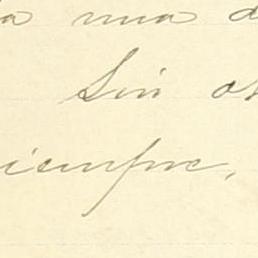 a una d
Sin ot
iempre,